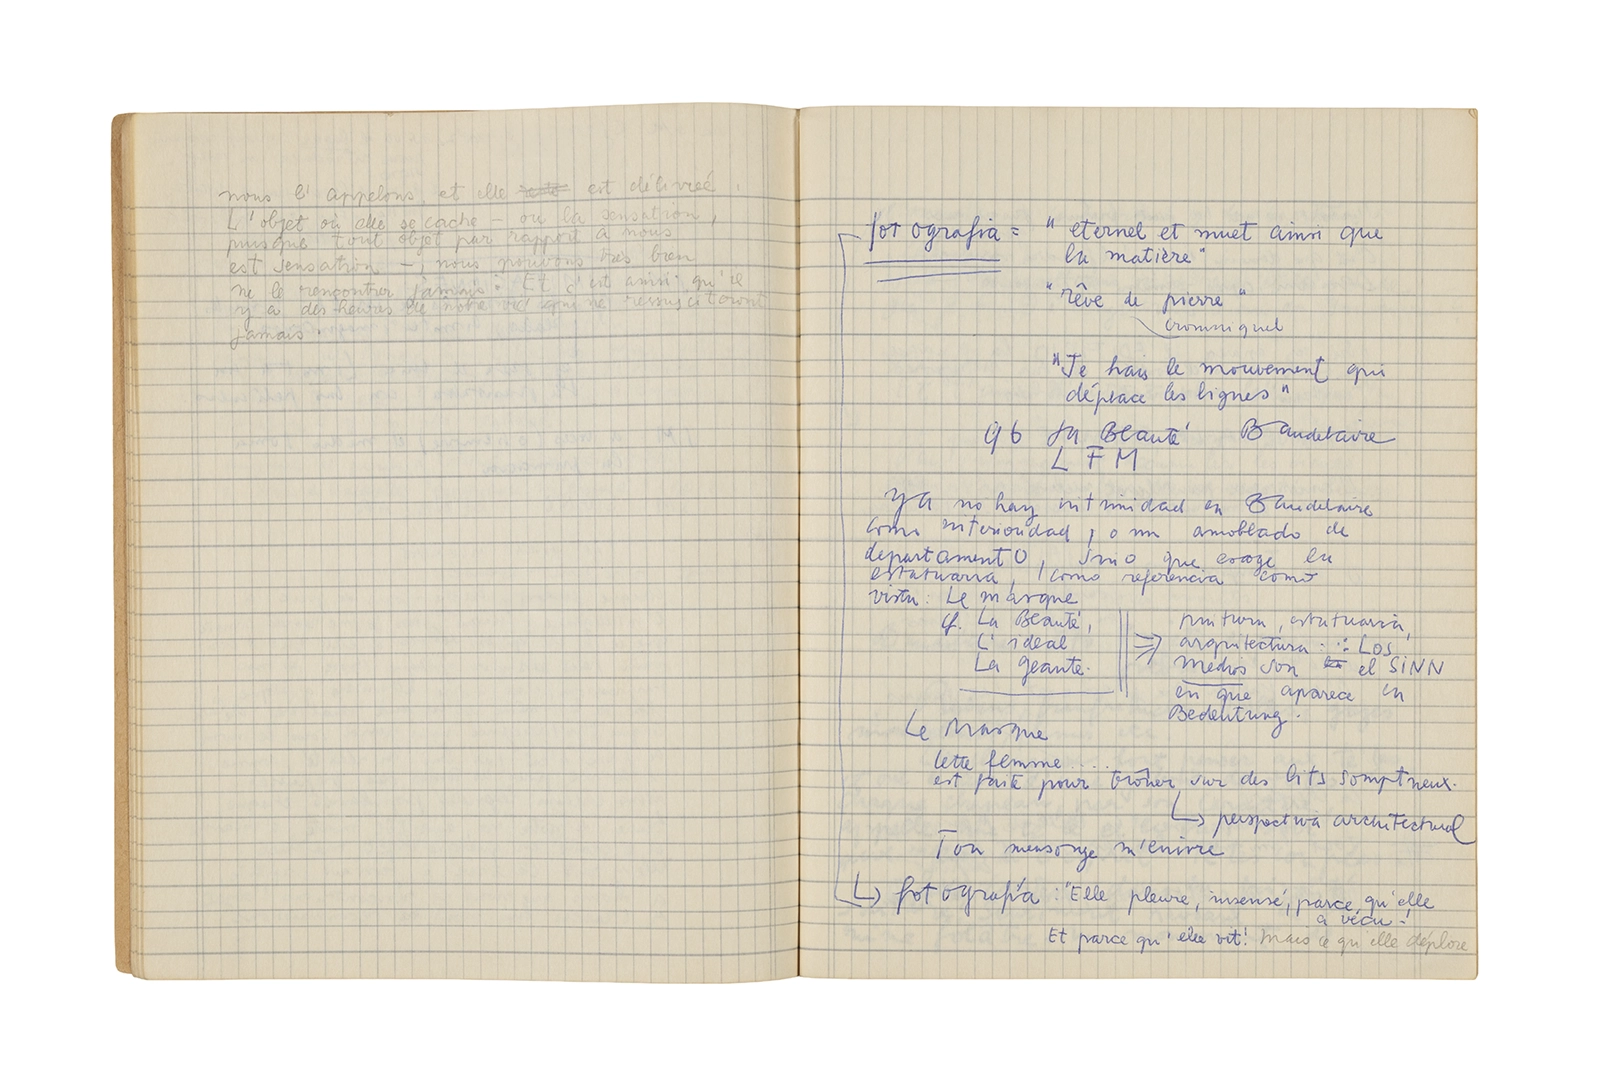 nous l'appelons, et elle est délivrée.
L'objet où elle se cache – ou la sensation,
puisque tout objet par rapport à nous
est sensation –, nous pouvons très bien
ne le rencontrer jamais. Et c'est ainsi qu'il
y a des heures de notre vie qui ne ressusciteront
jamais.
fotografia = "eternel et muet ainsi que
la matière"
"rêve de pierre"
"Je hais le mouvement qui
déplace les lignes"
96 La Beauté Baudelaire
LFM
Ya no hay intimidad en Baudelaire
como interioridad, o un amoblado de
departamento, sino que exige la
estatuaria, como referencia como
vista: Le masque
cf. La Beauté,
L'ideal
La geante.
pintura, estatuaria,
arquitectura ∴ Los
medios son el SINN
en que aparece la
Bedeutung.
Le Masque
Cette femme ....
est faite pour trôner sur des lits somptueux.
perspectiva architectural
Ton mensonge m'enivre
fotografía: "Elle pleure, insensé, parce qu'elle
a vécu!
Et parce qu'elle vit! Mais ce qu'elle déplore